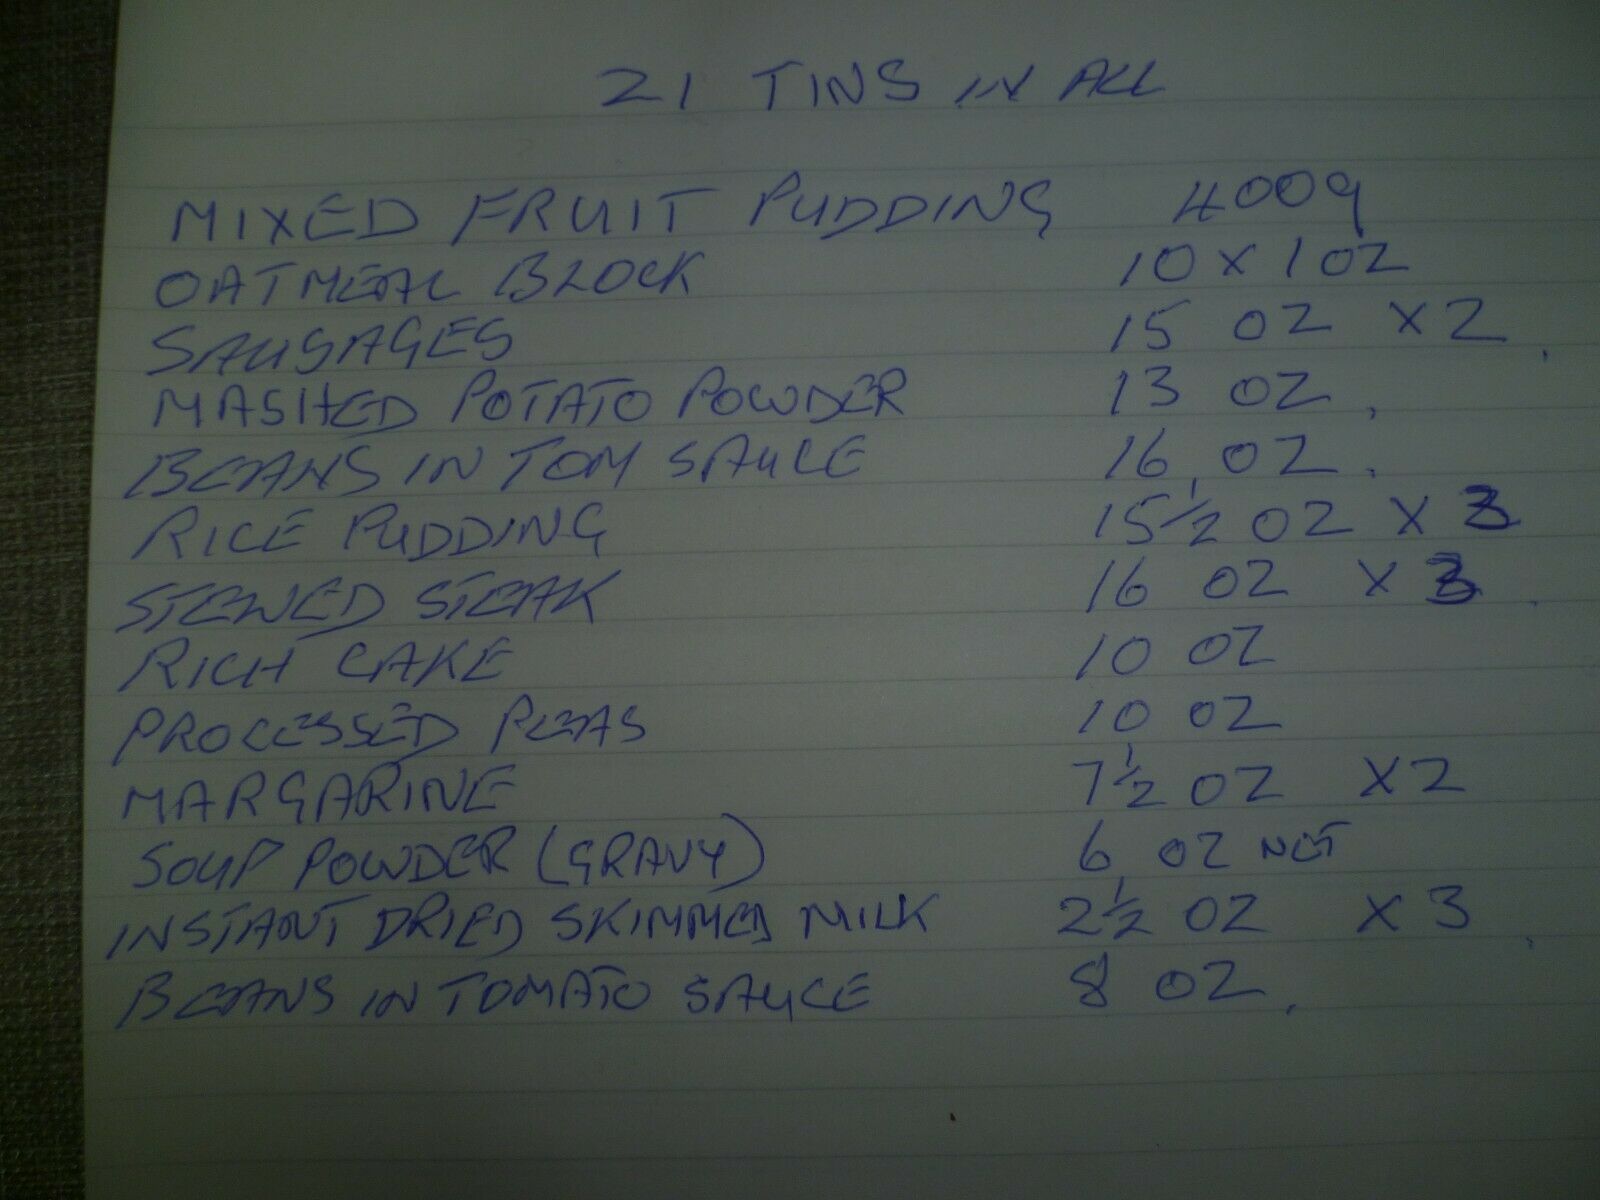 21 TINS IN ALL
MIXED FRUIT PUDDING 400g
OATMEAL BLOCK 10 x 1 OZ
SAUSAGES 15 OZ X 2
MASHED POTATO POWDER 13 OZ.
BEANS IN TOM SAUCE 16 OZ.
RICE PUDDING 15 1/2 OZ X 3
STEWED STEAK 16 OZ X 3
RICH CAKE 10 OZ
PROCESSED PEAS 10 OZ
MARGARINE 7 1/2 OZ X 2
SOUP POWDER (GRAVY) 6 OZ NET
INSTANT DRIED SKIMMED MILK 2 1/2 OZ X 3
BEANS IN TOMATO SAUCE 8 OZ.